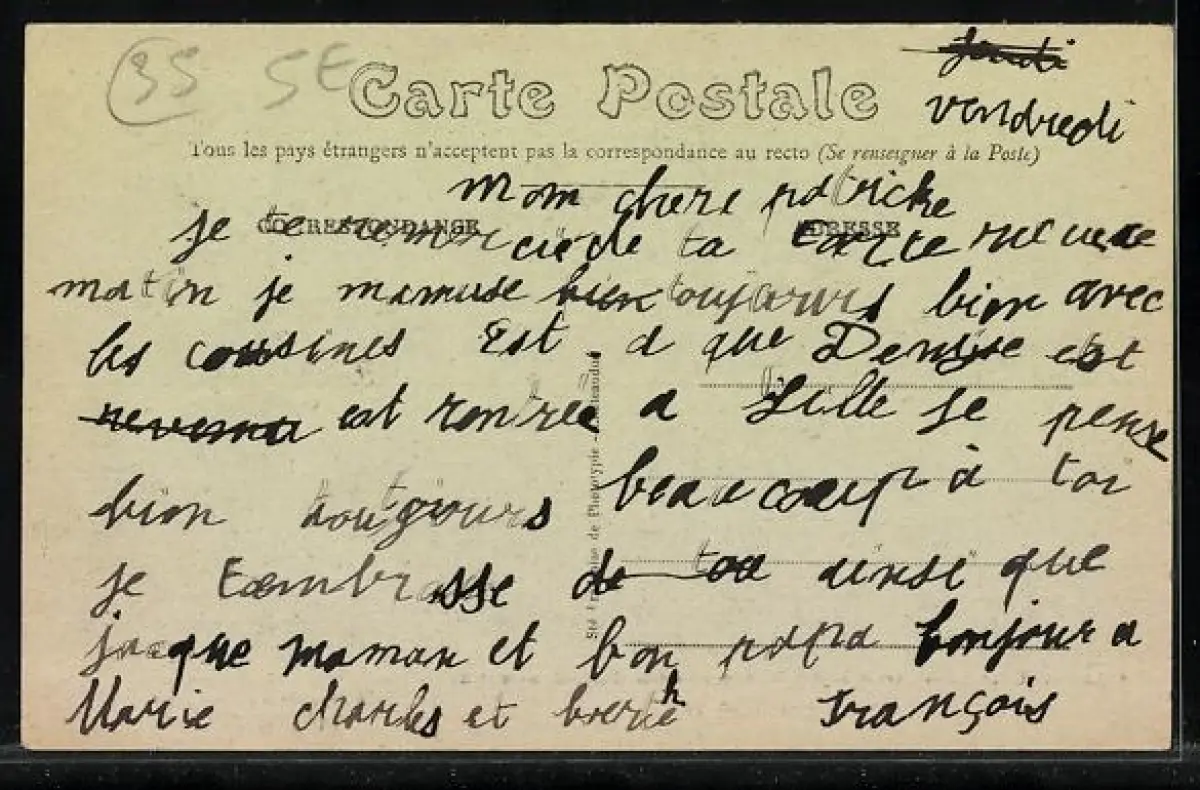 35 5E
Carte Postale
jeudi
vendredi
Tous les pays étrangers n'acceptent pas la correspondance au recto (Se renseigner à la Poste)
mon chere patricke
CORRESPONDANCE
ADRESSE
je te remer cie de ta carte recue ce
matin je mamuse bien toujours bien avec
les cousines Est a que Denise est
revenu est rentrée a Lille je pense
bien toutgours beaucoup à toi
je t'embrasse de tou ainsi que
jacque maman et bon papa bonjour a
Marie charles et
françois